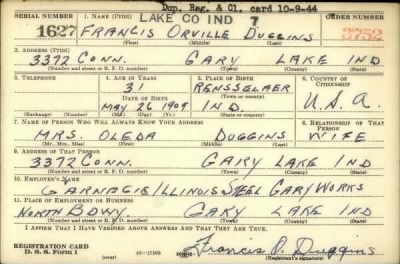 Dup. Reg. & Cl. card 10-9-44
SERIAL NUMBER 1. NAME (Print) ORDER NUMBER
LAKE CO IND 7
1627 FRANCIS ORVILLE DUGGINS 3752
(First) (Middle) (Last)
2. ADDRESS (Print)
3372 CONN. GARY LAKE IND
(Number and street or R. F. D. number) (Town) (County) (State)
3. TELEPHONE 4. AGE IN YEARS 5. PLACE OF BIRTH 6. COUNTRY OF CITIZENSHIP
31 RENSSELAER
DATE OF BIRTH (Town or county)
MAY 26 1909 IND U.S.A.
(Exchange) (Number) (Mo.) (Day) (Yr.) (State or country)
7. NAME OF PERSON WHO WILL ALWAYS KNOW YOUR ADDRESS 8. RELATIONSHIP OF THAT PERSON
MRS. OLEDA DUGGINS WIFE
(Mr., Mrs., Miss) (First) (Middle) (Last)
9. ADDRESS OF THAT PERSON
3372 CONN. GARY LAKE IND
(Number and street or R. F. D. number) (Town) (County) (State)
10. EMPLOYER'S NAME
ILLINOIS STEEL GARY WORKS
11. PLACE OF EMPLOYMENT OR BUSINESS
NORTH BDWY. GARY LAKE IND
(Number and street or R. F. D. number) (Town) (County) (State)
I AFFIRM THAT I HAVE VERIFIED ABOVE ANSWERS AND THAT THEY ARE TRUE.
REGISTRATION CARD
D. S. S. Form 1 16—17105 Francis O. Duggins
(Registrant's signature)